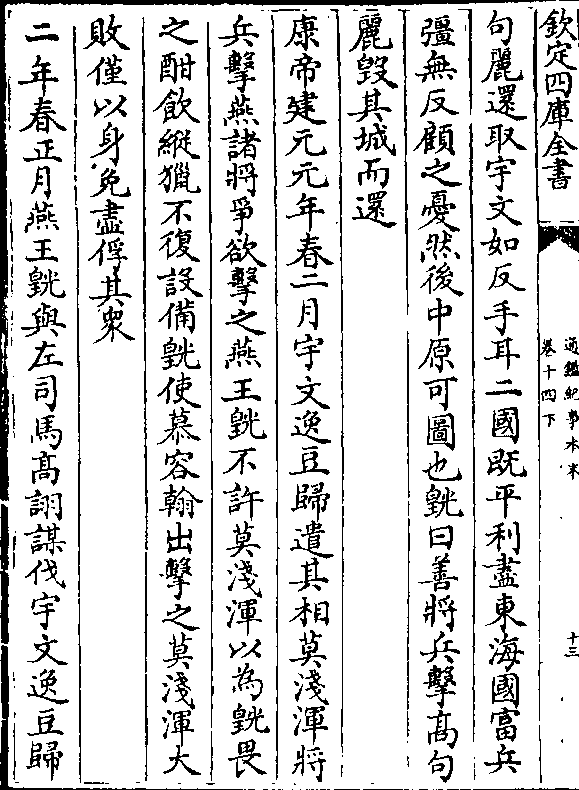 欽定四庫全書
通鑑紀事本末
卷十四下
十三
句麗還取宇文如反手耳二國既平利盡東海國富兵
彊無反顧之憂然後中原可圖也皝曰善將兵擊高句
麗毀其城而還
康帝建元元年春二月宇文逸豆歸遣其相莫淺渾將
兵擊燕諸將爭欲擊之燕王皝不許莫淺渾以為皝畏
之酣飲縱獵不復設備皝使慕容翰出擊之莫淺渾大
敗僅以身免盡俘其衆
二年春正月燕王皝與左司馬髙詡謀伐宇文逸豆歸